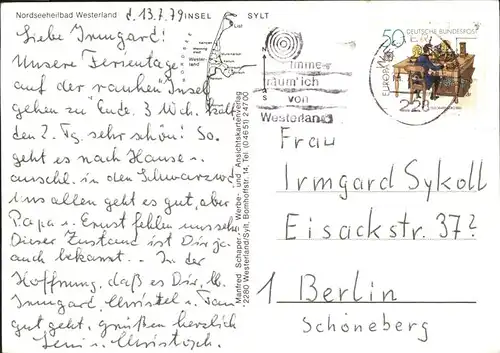 Nordseeheilbad Westerland
d. 13.7.79 INSEL SYLT
Liebe Irmgard!
Unsere Ferientage
auf der rauhen Insel
gehen zu Ende. 3 Wch.
den 2. Tg. sehr schön! So.
geht es nach Hause u.
anschl. in den Schwarzwald
Uns allen geht es gut, aber
Papa u. Ernst fehlen uns sehr.
Dieser Zustand ist Dir ja
auch bekannt. – In der
Hoffnung, daß es Dir, lb.
Irmgard, Christel u. Fam.
gut geht, grüßen herzlich
Leni u. Christoph.
Manfred Schaper - Werbe- und Ansichtskartenverlag
2280 Westerland/Sylt, Bomhoffstr. 14, Tel. (04651) 24700
Imme
räum' ich
von
Westerland
50
DEUTSCHE BUNDESPOST
EUROPA
228
Frau
Irmgard Sykoll
Eisackstr. 37?
1 Berlin
Schöneberg